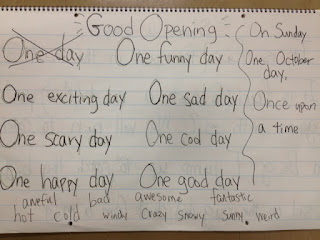 Good Opening
One day One funny day
One exciting day One sad day
One scary day One cool day
One happy day One good day
aweful bad awesome fantastic
hot cold windy crazy snowy sunny weird
On Sunday
One October
day,
Once upon
a time